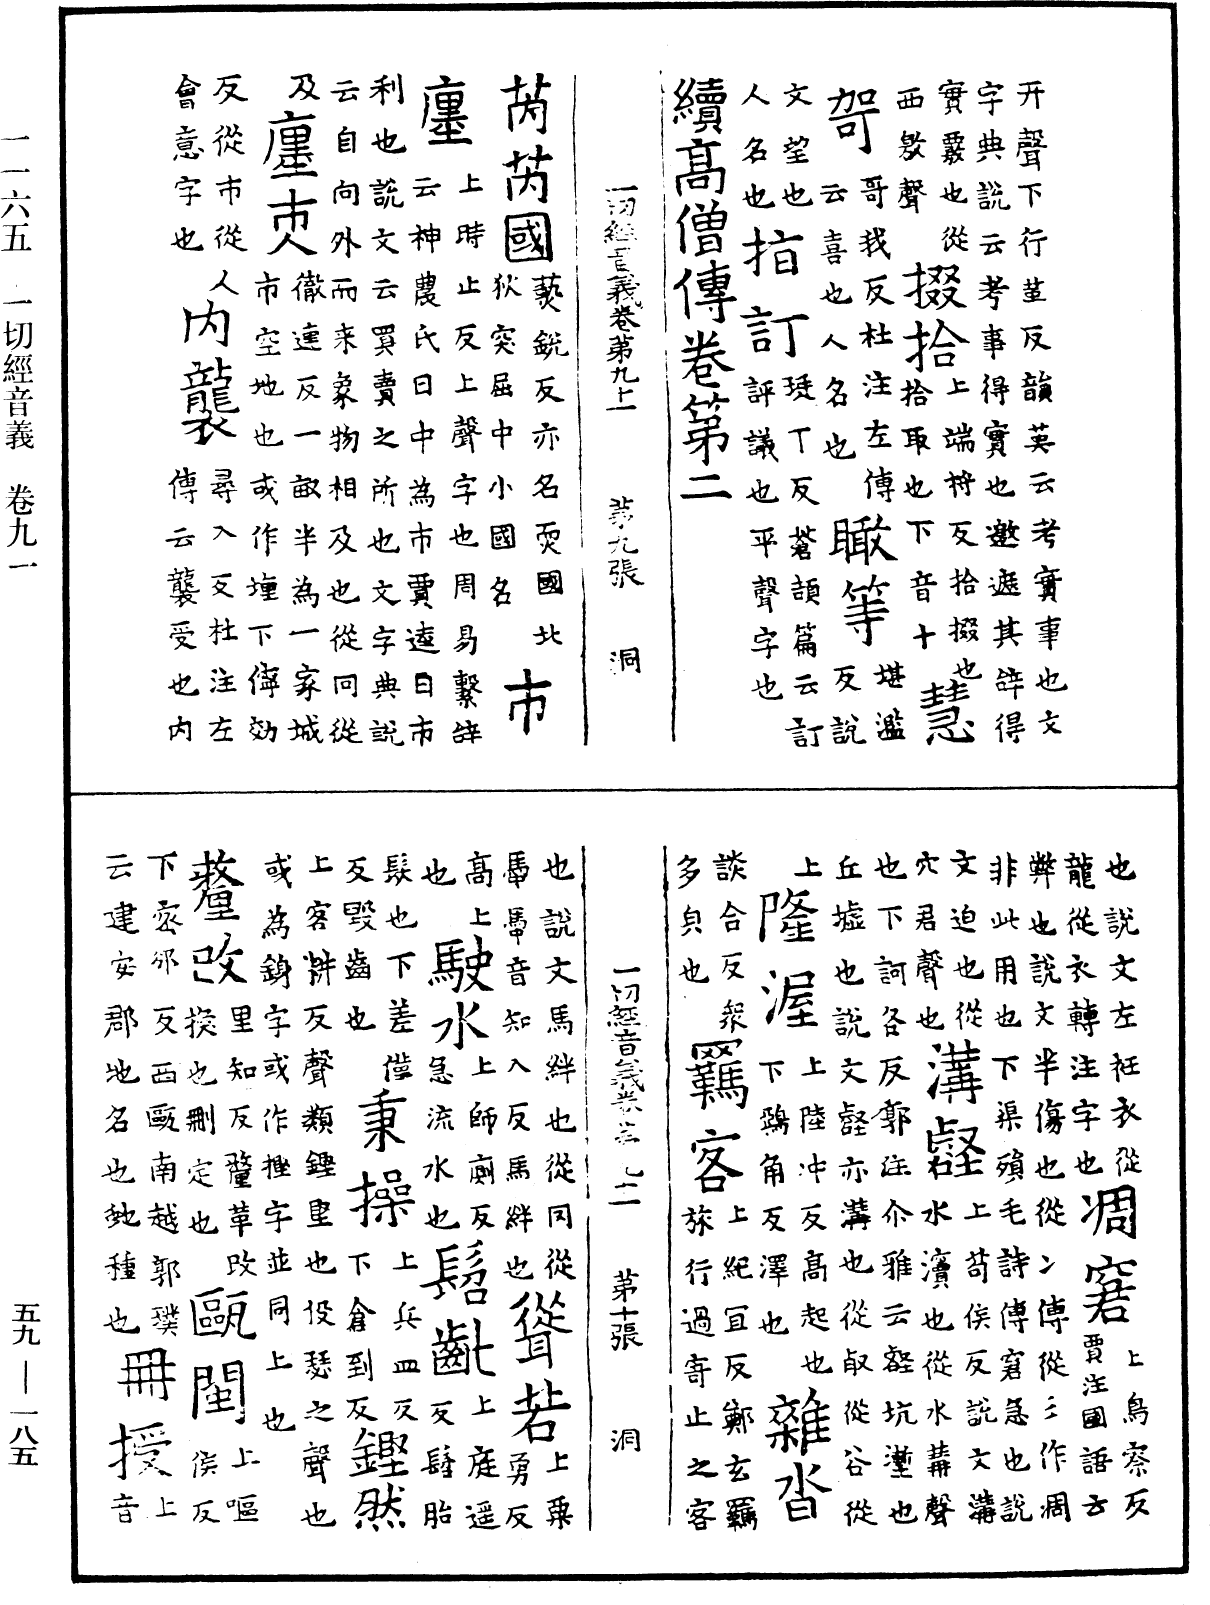 开聲下行堇反韻英云考實事也文
字典說云考事得實也邀遮其辝得
實覈也從西敫聲 掇拾 上端捋反拾掇也拾取也下音十 慧
哿 哥我反杜注左傳云喜也人名也 瞰等 堪濫反說
文望也人名也 指訂 珽丁反蒼頡篇云訂評議也平聲字也
續高僧傳卷第二
一切經音義卷第九十一 第九張 洞
芮芮國 爇銳反亦名耎國北狄突屈中小國名 市
廛 上時止反上聲字也周易繫辝云神農氏日中為市賈逵曰市
利也說文云買賣之所也文字典說
云自向外而来象物相及也從冋從
及 廛市人 徹連反一畝半為一家城市空地也或作㕓下儜効
反從市從人會意字也 內襲 尋入反杜注左傳云襲受也內
也說文左衽衣從龍從衣轉注字也 凋窘 上鳥寮反賈注國語云
弊也說文半傷也從冫傳從冫作凋
非此用也下渠殞毛詩傳窘急也說
文迫也從穴君聲也 溝壑 上苟侯反說文溝水瀆也從水冓聲
也下訶各反郭注尒雅云壑坑壍也
丘墟也說文壑亦溝也從㕡從谷從
隆渥 上陸冲反高起也下鴉角反澤也 雜沓
談合反衆多皃也 羈客 上紀冝反鄭玄羈旅行過寄止之客
也說文馬絆也從冈從馽馽音知入反馬絆也 聳若 上粟勇反
高上也 駛水 上師廁反急流水也 髫齔 上庭遥反髫胎
髮也下差僅反毀齒也 秉操 上兵皿反下倉到反 鏗然
上客耕反聲類鏗堅也伇瑟之聲也
或為字或作摼字並同上也
釐改 里知反釐革改換也刪定也 甌閩 上嘔侯反
下密邠反西甌南越郭璞云建安郡地名也虵種也 冊授 上音
一切經音義卷第九十一 第十張 洞
一一六五 一切經音義 卷九一
五九—一八五